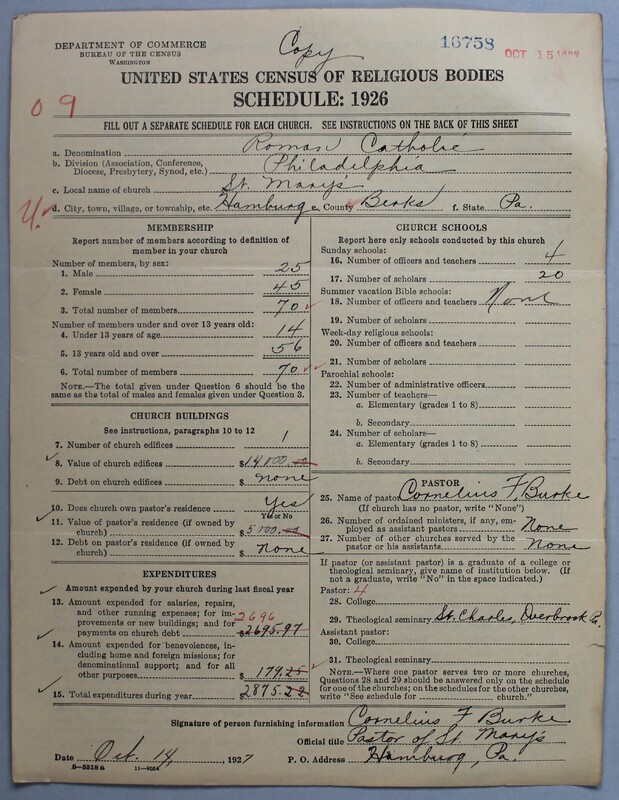 DEPARTMENT OF COMMERCE
BUREAU OF THE CENSUS
WASHINGTON
Copy
16758
OCT 15 1927
UNITED STATES CENSUS OF RELIGIOUS BODIES
SCHEDULE: 1926
0 9
FILL OUT A SEPARATE SCHEDULE FOR EACH CHURCH. SEE INSTRUCTIONS ON THE BACK OF THIS SHEET
a. Denomination Roman Catholic
b. Division (Association, Conference, Diocese, Presbytery, Synod, etc.) Philadelphia
c. Local name of church St. Mary's
d. City, town, village, or township, etc. Hamburg e. County Berks f. State Pa.
MEMBERSHIP
Report number of members according to definition of
member in your church
Number of members, by sex:
1. Male 25
2. Female 45
3. Total number of members 70
Number of members under and over 13 years old:
4. Under 13 years of age 14
5. 13 years old and over 56
6. Total number of members 70
NOTE.—The total given under Question 6 should be the
same as the total of males and females given under Question 3.
CHURCH BUILDINGS
See instructions, paragraphs 10 to 12
7. Number of church edifices 1
8. Value of church edifices $14000.00
9. Debt on church edifices $none
10. Does church own pastor's residence Yes
Yes or No
11. Value of pastor's residence (if owned by
church) $5000.00
12. Debt on pastor's residence (if owned by
church) $None
EXPENDITURES
Amount expended by your church during last fiscal year
13. Amount expended for salaries, repairs,
and other running expenses; for im-
provements or new buildings; and for 2696
payments on church debt $2695.97
14. Amount expended for benevolences, in-
cluding home and foreign missions; for
denominational support; and for all
other purposes $179.25
15. Total expenditures during year $2875.22
CHURCH SCHOOLS
Report here only schools conducted by this church
Sunday schools:
16. Number of officers and teachers 4
17. Number of scholars 20
Summer vacation Bible schools:
18. Number of officers and teachers None
19. Number of scholars
Week-day religious schools:
20. Number of officers and teachers
21. Number of scholars
Parochial schools:
22. Number of administrative officers
23. Number of teachers—
a. Elementary (grades 1 to 8)
b. Secondary
24. Number of scholars—
a. Elementary (grades 1 to 8)
b. Secondary
PASTOR
25. Name of pastor Cornelius F. Burke
(If church has no pastor, write "None")
26. Number of ordained ministers, if any, em-
ployed as assistant pastors None
27. Number of other churches served by the
pastor or his assistants None
If pastor (or assistant pastor) is a graduate of a college or
theological seminary, give name of institution below. (If
not a graduate, write "No" in the space indicated.)
Pastor: 4
28. College
29. Theological seminary St. Charles, Overbrook Pa.
Assistant pastor:
30. College
31. Theological seminary
NOTE.—Where one pastor serves two or more churches,
Questions 28 and 29 should be answered only on the schedule
for one of the churches; on the schedules for the other churches,
write "See schedule for church."
Signature of person furnishing information Cornelius F Burke
Official title Pastor of St Mary's
Date Oct. 14, 1927 P. O. Address Hamburg, Pa.
8—5318 a 11—9054